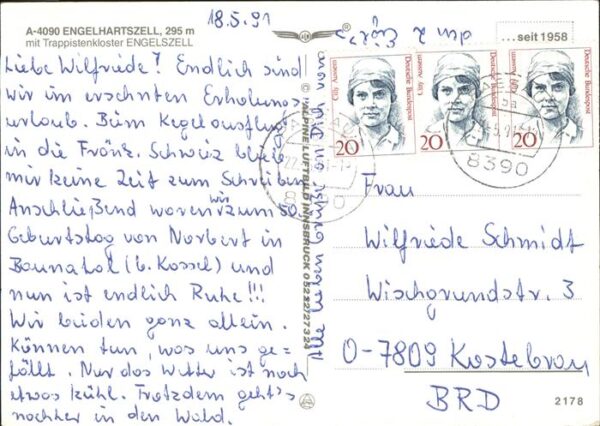 18.5.91
A-4090 ENGELHARTSZELL, 295 m
mit Trappistenkloster ENGELSZELL
...seit 1958
Liebe Wilfriede! Endlich sind
wir im ersehnten Erholungs
urlaub. Beim Kegelausflug
in die Fränk. Schweiz blieb
mir keine Zeit zum Schreiben
Anschließend waren wir zum 50.
Geburtstag von Norbert in
Baunatal (b. Kassel) und
nun ist endlich Ruhe!!!
Wir beiden ganz allein.
Können tun, was uns ge-
fällt. Nur das Wetter ist noch
etwas kühl. Trotzdem geht's
nachher in den Wald.
Alle
© ALPINE LUFTBILD INNSBRUCK 05222/27324
Cilly Aussem
Deutsche Bundespost
20
Cilly Aussem
Deutsche Bundespost
20
Cilly Aussem
Deutsche Bundespost
20
8390
Frau
Wilfriede Schmidt
Wischgrundstr. 3
O-7809 Kostebrau
BRD
2178